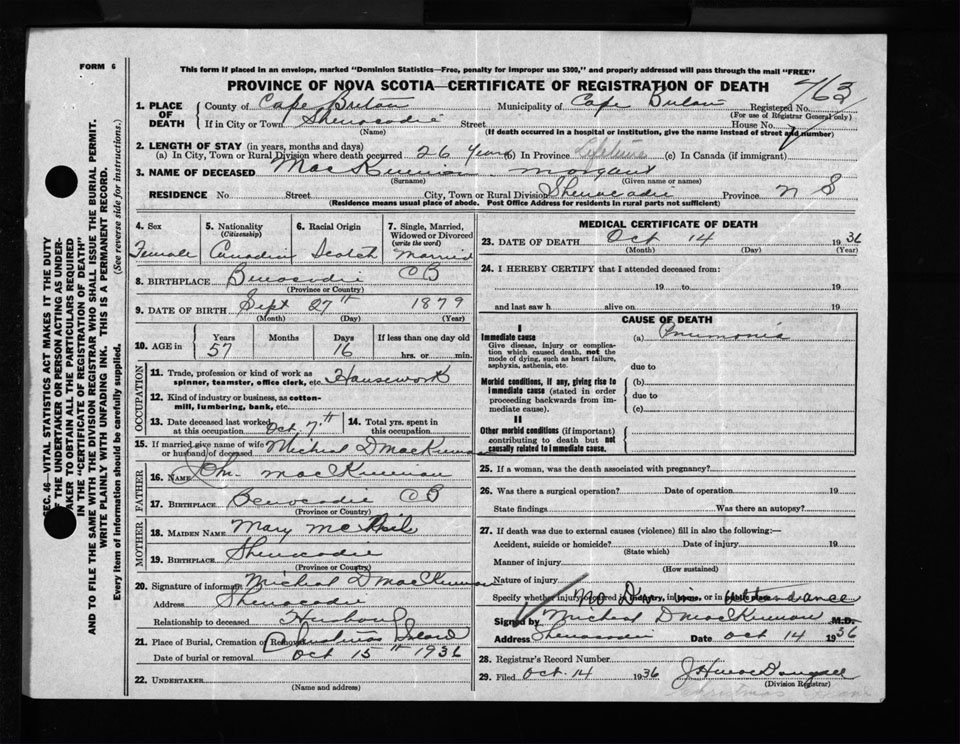 FORM 6
This form if placed in an envelope, marked "Dominion Statistics—Free, penalty for improper use $300," and properly addressed will pass through the mail "FREE"
PROVINCE OF NOVA SCOTIA—CERTIFICATE OF REGISTRATION OF DEATH
1. PLACE OF DEATH
County of Cape Breton Municipality of Cape Breton Registered No. 763
(For use of Registrar General only)
If in City or Town Shenacadie Street House No.
(Name) (If death occurred in a hospital or institution, give the name instead of street and number)
2. LENGTH OF STAY (in years, months and days)
(a) In City, Town or Rural Division where death occurred 26 years (b) In Province Lifetime (c) In Canada (if immigrant)
3. NAME OF DECEASED MacKinnon
(Surname) (Given name or names)
RESIDENCE No. Street City, Town or Rural Division Shenacadie Province N S
(Residence means usual place of abode. Post Office Address for residents in rural parts not sufficient)
4. Sex
Female
5. Nationality
(Citizenship)
Canadian
6. Racial Origin
Scotch
7. Single, Married, Widowed or Divorced
(write the word)
Married
8. BIRTHPLACE Benacadie CB
(Province or Country)
9. DATE OF BIRTH Sept 27th 1879
(Month) (Day) (Year)
10. AGE in
Years Months Days If less than one day old
57 16 hrs. or min.
OCCUPATION
11. Trade, profession or kind of work as
spinner, teamster, office clerk, etc. Housework
12. Kind of industry or business, as cotton-
mill, lumbering, bank, etc.
13. Date deceased last worked at this occupation Oct. 7th
14. Total yrs. spent in this occupation
15. If married give name of wife or husband of deceased Micheal D MacKinnon
FATHER
16. NAME MacKinnon
17. BIRTHPLACE Benacadie CB
(Province or Country)
MOTHER
18. MAIDEN NAME Mary McNeil
19. BIRTHPLACE Shenacadie
(Province or Country)
20. Signature of informant Micheal D MacKinnon
Address Shenacadie
Relationship to deceased Husband
21. Place of Burial, Cremation or Removal Christmas Island
Date of burial or removal Oct 15th 1936
22. UNDERTAKER
(Name and address)
MEDICAL CERTIFICATE OF DEATH
23. DATE OF DEATH Oct 14 1936
(Month) (Day) (Year)
24. I HEREBY CERTIFY that I attended deceased from:
19 to 19
and last saw h alive on 19
CAUSE OF DEATH
I
Immediate cause
Give disease, injury or complication which caused death, not the mode of dying, such as heart failure, asphyxia, asthenia, etc.
(a) Pneumonia
due to
Morbid conditions, if any, giving rise to immediate cause (stated in order proceeding backwards from immediate cause).
(b)
due to
(c)
II
Other morbid conditions (if important) contributing to death but not causally related to immediate cause.
25. If a woman, was the death associated with pregnancy?
26. Was there a surgical operation? Date of operation 19
State findings Was there an autopsy?
27. If death was due to external causes (violence) fill in also the following:—
Accident, suicide or homicide? Date of injury 19
(State which)
Manner of injury
(How sustained)
Nature of injury
Specify whether injury occurred in industry, in home, or in public place
No Dr in attendance
Signed by Micheal D MacKinnon M.D.
Address Shenacadie Date Oct 14 1936
28. Registrar's Record Number
29. Filed Oct. 14 1936
(Division Registrar)
SEC. 46—VITAL STATISTICS ACT MAKES IT THE DUTY
OF THE UNDERTAKER OR PERSON ACTING AS UNDER-
TAKER TO OBTAIN ALL THE PARTICULARS REQUIRED
IN THE "CERTIFICATE OF REGISTRATION OF DEATH"
AND TO FILE THE SAME WITH THE DIVISION REGISTRAR WHO SHALL ISSUE THE BURIAL PERMIT.
WRITE PLAINLY WITH UNFADING INK. THIS IS A PERMANENT RECORD.
Every item of information should be carefully supplied. (See reverse side for instructions.)